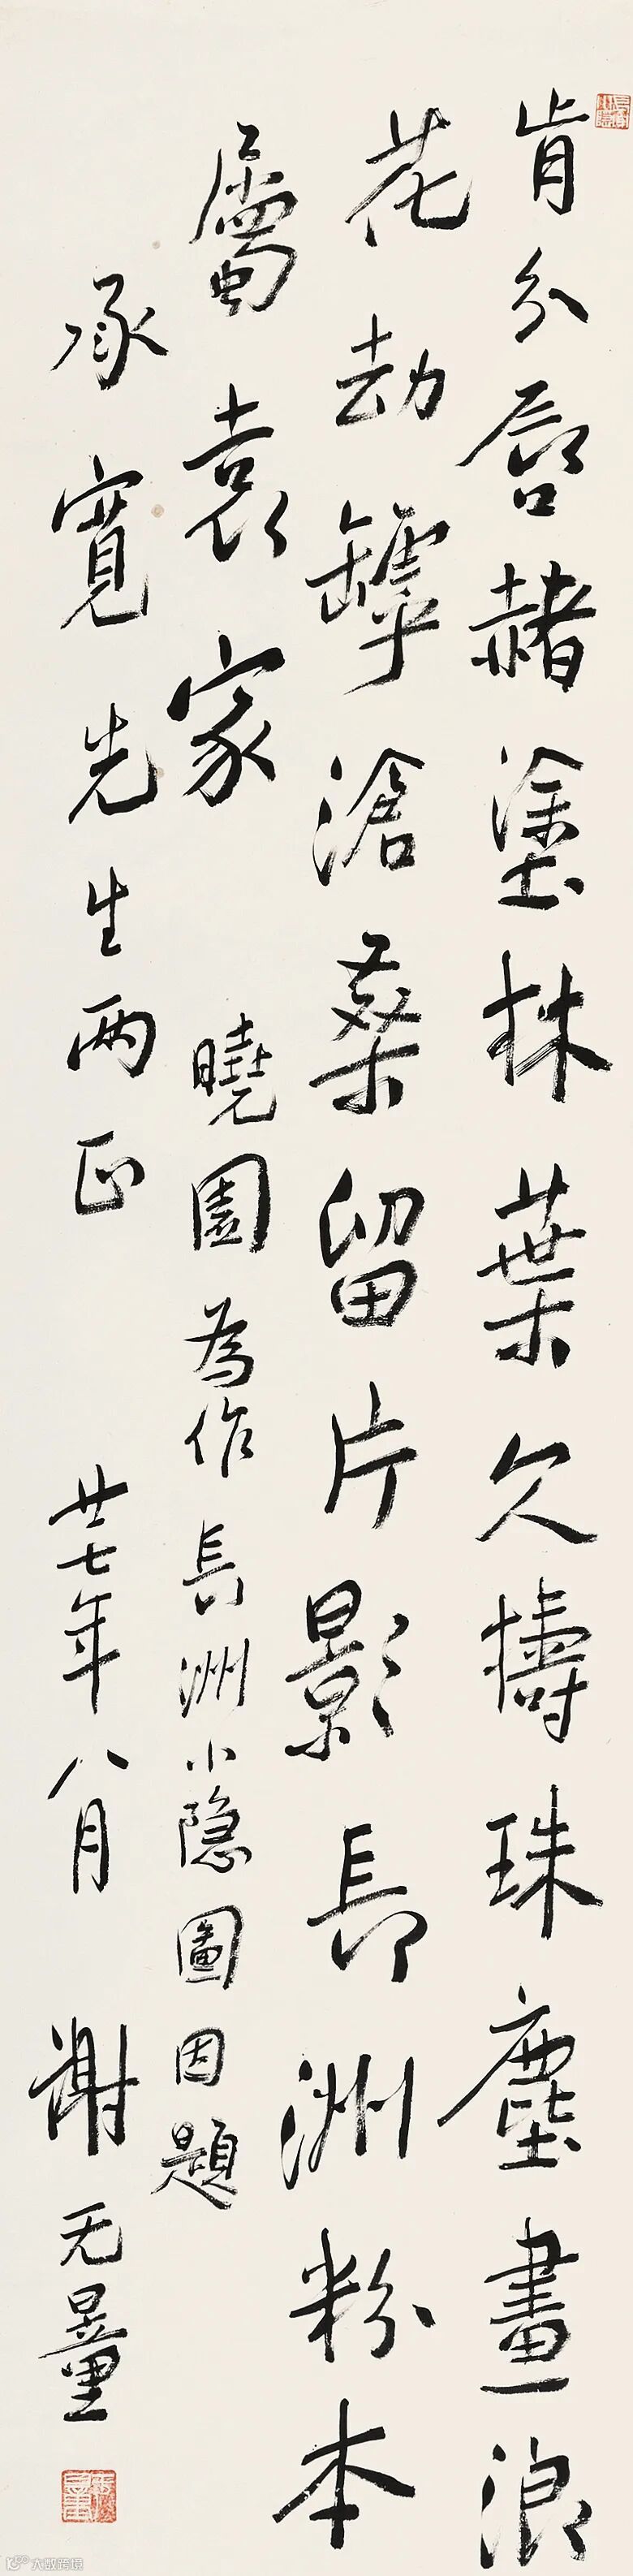 肯分唇赭塗林葉久擣珠塵畫浪
花劫罅滄桑留片影長洲粉本
屬袁家 曉園為作長洲小隐圖因題
承寬先生兩正 廿七年八月 謝无量
大蚁跨境